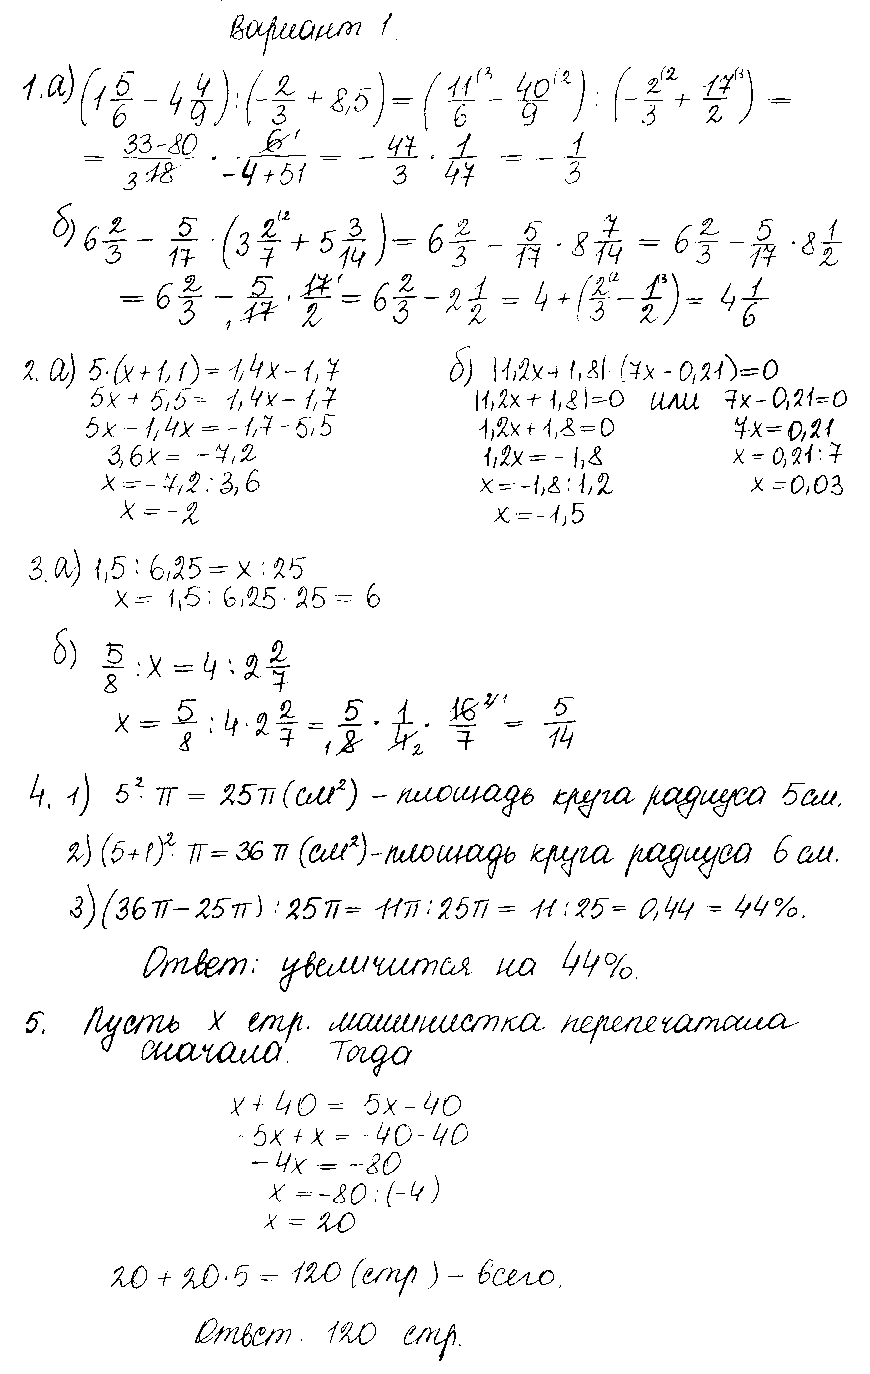 Вариант 1.
1.а) (1 5/6 − 4 4/9) : (− 2/3 + 8,5) = (11/6 (3 − 40/9 (2) : (− 2/3 (2 + 17/2 (3) =
= 33−80/3 18 · 6 1/−4+51 = − 47/3 · 1/47 = − 1/3
б) 6 2/3 − 5/17 · (3 2/7 (2 + 5 3/14) = 6 2/3 − 5/17 · 8 7/14 = 6 2/3 − 5/17 · 8 1/2
= 6 2/3 − 5/1 17 · 17 1/2 = 6 2/3 − 2 1/2 = 4 + (2/3 (2 − 1/2 (3) = 4 1/6
2. а) 5·(x+1,1) = 1,4x − 1,7
5x + 5,5 = 1,4x − 1,7
5x − 1,4x = −1,7 − 5,5
3,6x = −7,2
x = −7,2 : 3,6
x = −2
б) |1,2x + 1,8| · (7x − 0,21) = 0
|1,2x + 1,8| = 0 или 7x − 0,21 = 0
1,2x + 1,8 = 0 7x = 0,21
1,2x = −1,8 x = 0,21 : 7
x = −1,8 : 1,2 x = 0,03
x = −1,5
3. а) 1,5 : 6,25 = x : 25
x = 1,5 : 6,25 · 25 = 6
б) 5/8 : x = 4 : 2 2/7
x = 5/8 : 4 · 2 2/7 = 5/1 8 · 1/4 2 · 16 2 1/7 = 5/14
4. 1) 5² · π = 25π (см²) − площадь круга радиуса 5 см.
2) (5+1)² · π = 36π (см²) − площадь круга радиуса 6 см.
3) (36π − 25π) : 25π = 11π : 25π = 11 : 25 = 0,44 = 44%.
Ответ: увеличится на 44%.
5. Пусть x стр. машинистка перепечатала
сначала. Тогда
x + 40 = 5x − 40
−5x + x = −40 − 40
−4x = −80
x = −80 : (−4)
x = 20
20 + 20·5 = 120 (стр.) − всего.
Ответ. 120 стр.